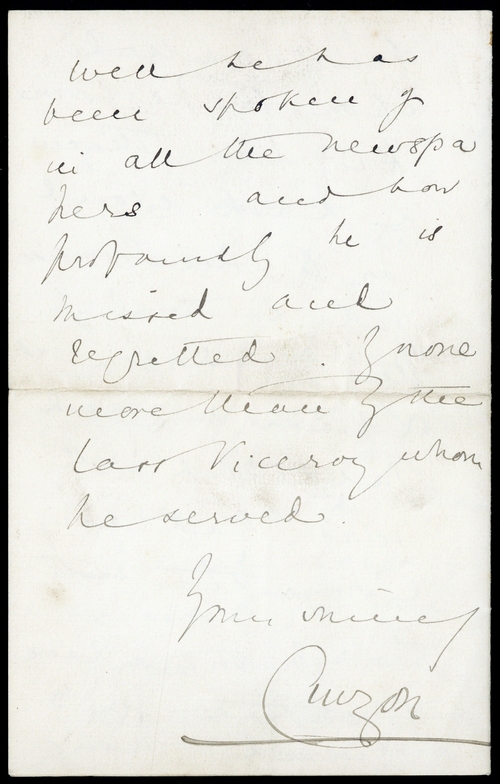 well he has
been spoken of
in all the newspa
pers and how
profoundly he is
missed and
regretted. By none
more than by the
last Viceroy whom
he served.
Yours sincerely
Curzon